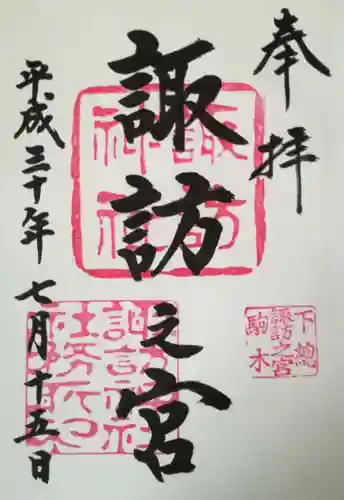 奉拝
下総
諏訪之宮
駒木
諏訪之宮
諏訪神社
社務所印
平成三十年七月十五日